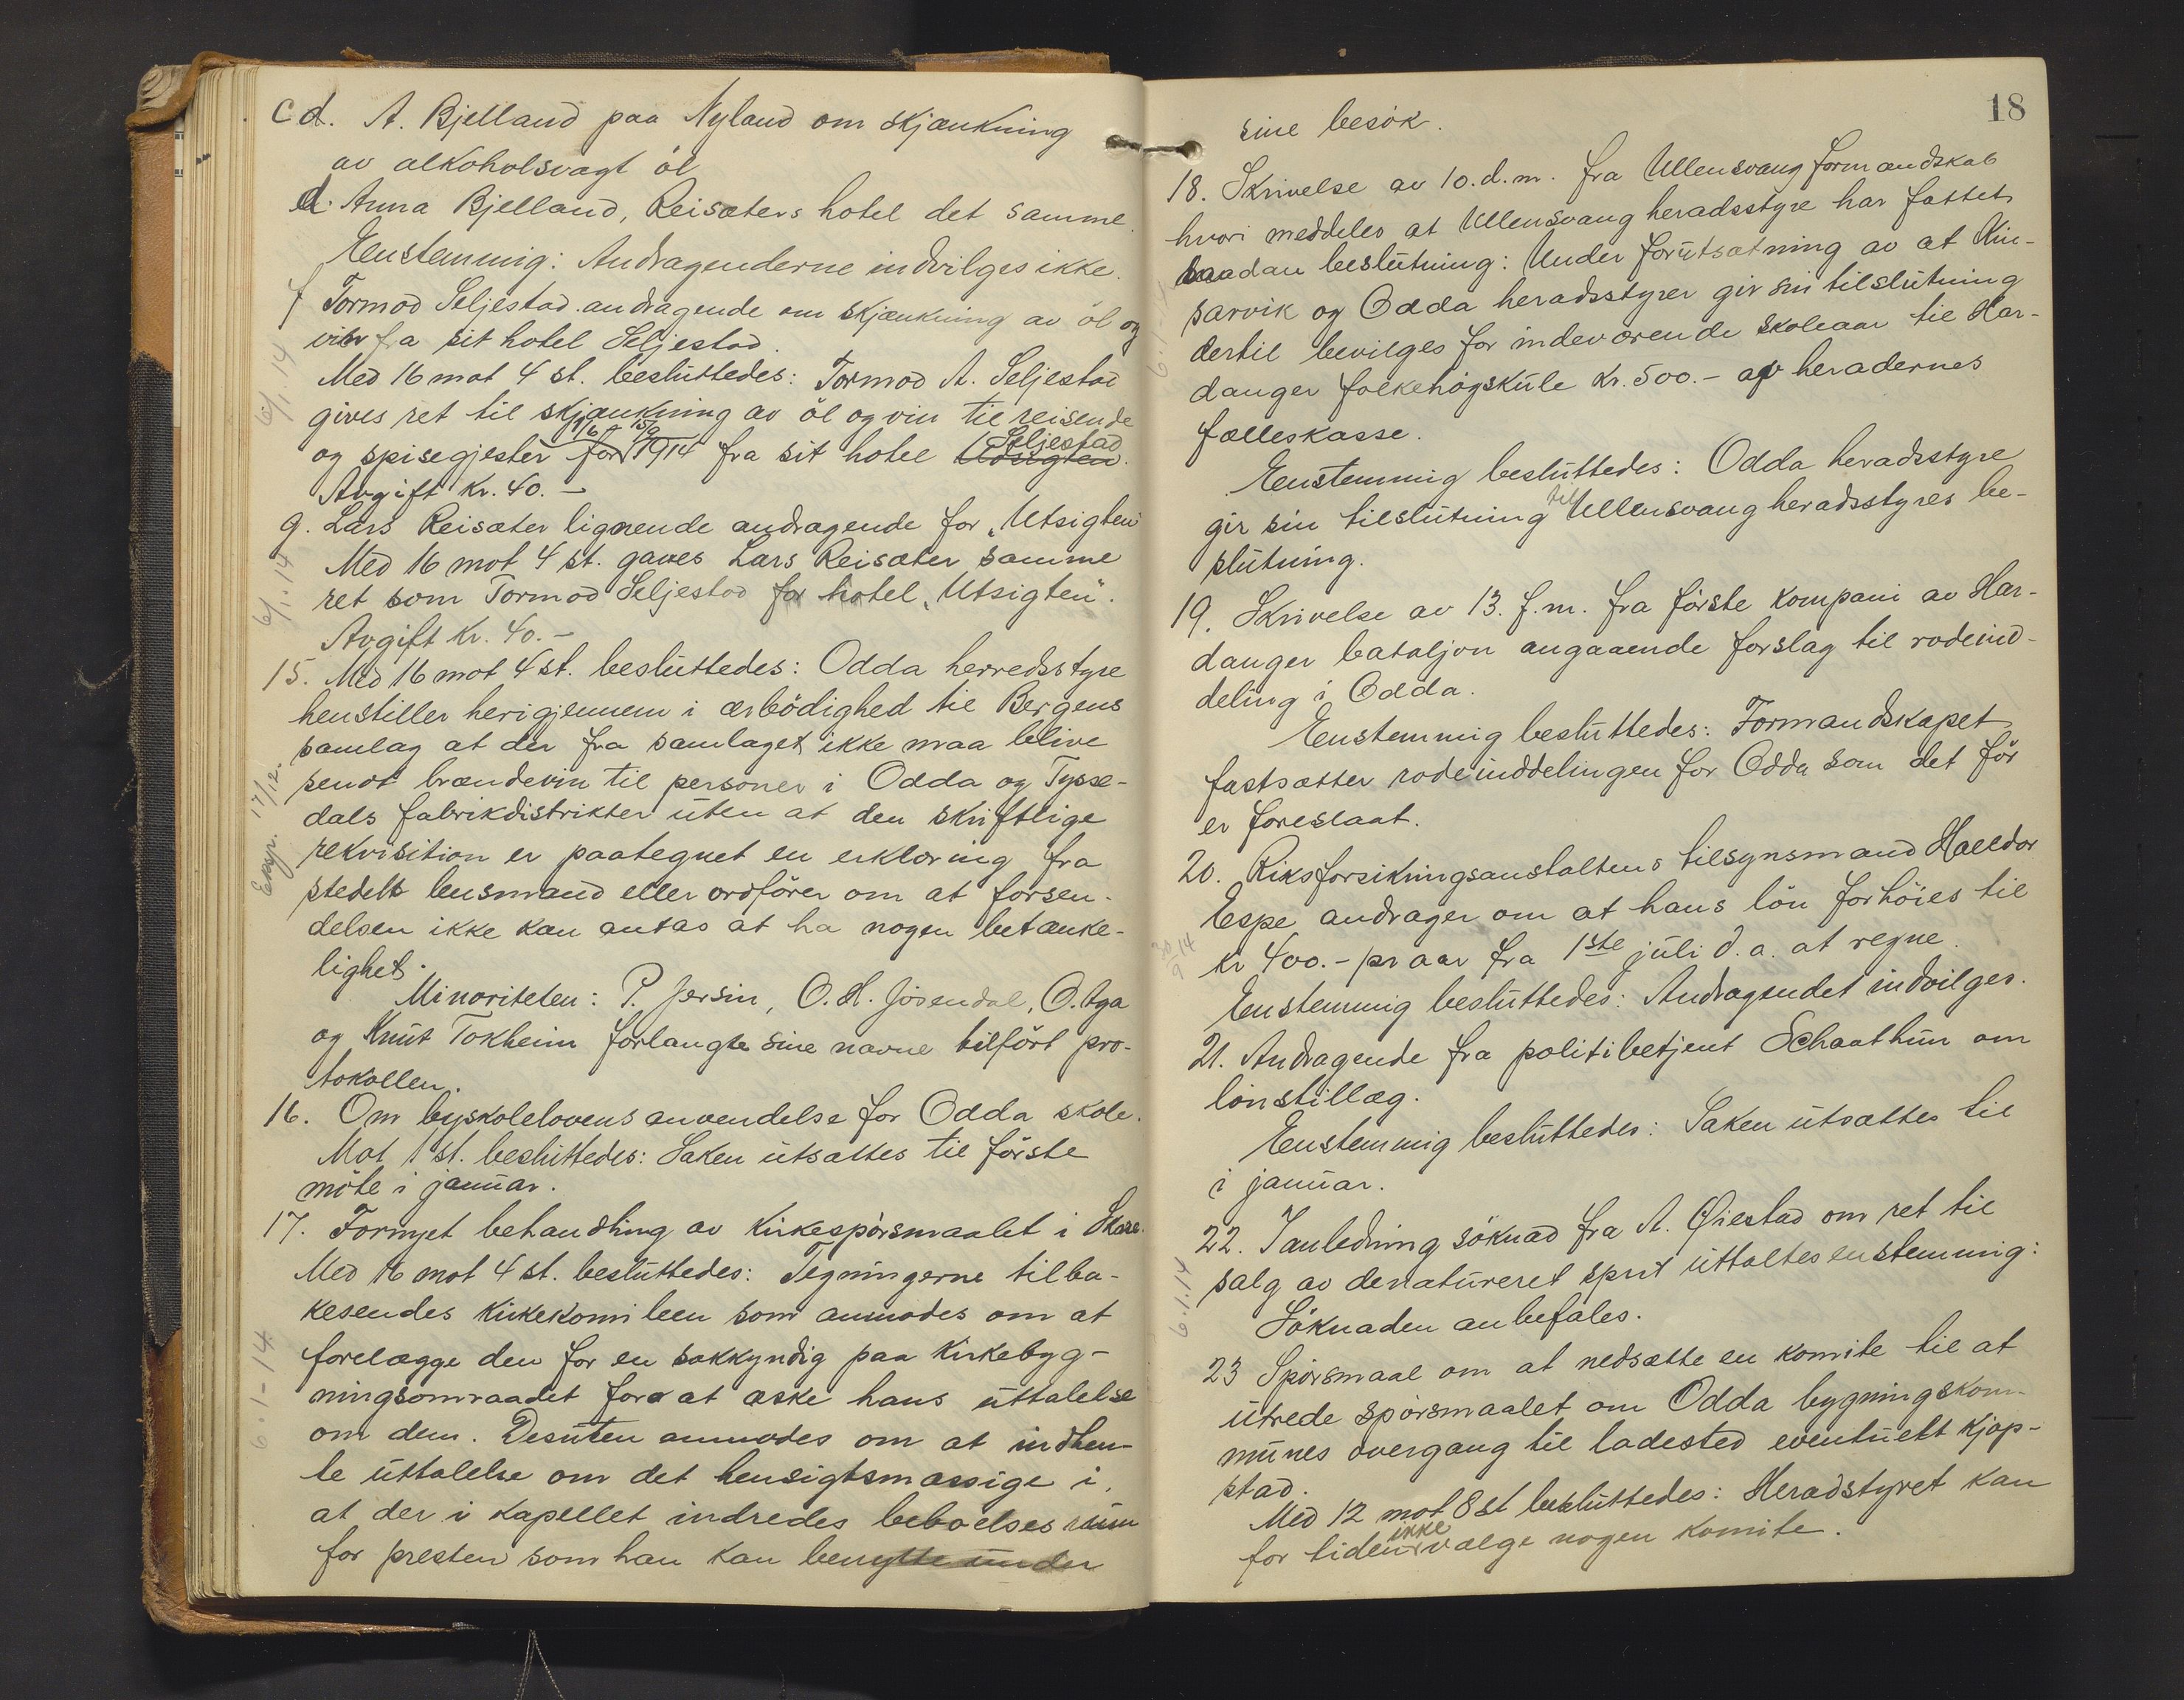 cd. A. Bjelland paa Nyland om skjænkning
av alkoholsvagt öl
d. Anna Bjelland, Reisæters hotel det samme.
Enstemmig: Andragenderne indvilges ikke.
f Tormod Seljestad andragende om skjænkning av öl og
vin fra sit hotel Seljestad.
6/1.14
Med 16 mot 4 st. besluttedes: Tormod A. Seljestad
gives ret til skjænkning av öl og vin til reisende
1/6 15/9 Seljestad
og spisegjester for 1914 fra sit hotel Udsigten.
Avgift kr. 40.-
g. Lars Reisæter lignende andragende for „Utsigten"
6/1.14
Med 16 mot 4 st. gaves Lars Reisæter samme
ret som Tormod Seljestad for hotel „Utsigten".
Avgift kr. 40.-
15. Med 16 mot 4 st. besluttedes: Odda herredsstyre
henstiller herigjennem i ærbödighed til Bergens
samlag at der fra samlaget ikke maa blive
Exp. 17/12.
sendt brændevin til personer i Odda og Tysse-
dals fabrikdistrikter uten at den skriftlige
rekvisition er paategnet en erklæring fra
stedets lensmand eller ordförer om at forsen-
delsen ikke kan antas at ha nogen betænke-
lighet.
Minoriteten: P. Jersin, O. H. Jösendal, O. Aga
og Knut Tokheim forlangte sine navne tilfört pro-
tokollen.
16. Om byskolelovens anvendelse for Odda skole.
Mot 1 st. besluttedes: Saken utsættes til förste
möte i januar.
17. Fornyet behandling av kirkespörsmaalet i Skare.
Med 16 mot 4 st. besluttedes: Tegningerne tilba-
kesendes kirkekomiteen som anmodes om at
6-1-14
forelægge den for en sakkyndig paa kirkebyg-
ningsomraadet for at æske hans uttalelse
om dem. Desuten anmodes om at indhen-
te uttalelse om det hensigtsmæssige i,
at der i kapellet indredes beboelsesrum
for presten som han kan benytte under
18
sine besök.
18. Skrivelse av 10. d.m. fra Ullensvang formandskab
hvori meddeles at Ullensvang heradsstyre har fattet
saadan beslutning: Under forutsætning av at Kin-
6-1-14
sarvik og Odda heradsstyrer gir sin tilslutning
dertil bevilges for indeværende skoleaar til Har-
danger folkehögskule kr. 500.- av heradernes
fælleskasse.
Enstemmig besluttedes: Odda heradsstyre
gir sin tilslutning til Ullensvang heradsstyres be-
slutning.
19. Skrivelse av 13. f.m. fra förste kompani av Har-
danger bataljon angaaende forslag til rodeind-
deling i Odda.
Enstemmig besluttedes: Formandskapet
fastsætter rodeinddelingen for Odda som det för
er foreslaat.
20. Riksforsikringsanstaltens tilsynsmand Halldor
Espe andrager om at hans lön forhöies til
30/9 14
kr 400.- pr aar fra 1ste juli d.a. at regne.
Enstemmig besluttedes: Andragendet indvilges.
21. Andragende fra politibetjent Schaathun om
lönstillæg.
Enstemmig besluttedes: Saken utsættes til
i januar.
22. I anledning söknad fra A. Øiestad om ret til
salg av denatureret sprit uttaltes enstemmig:
6.1.14
Söknaden anbefales.
23 Spörsmaal om at nedsætte en komite til at
utrede spörsmaalet om Odda bygningskom-
munes overgang til ladested eventuelt kjöp-
stad.
Med 12 mot 8 st besluttedes: Heradstyret kan
ikke
for tiden vælge nogen komite.